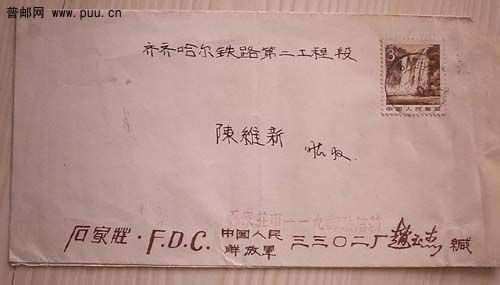 普邮网
www.puu.cn
齐齐哈尔铁路第二工程段
8
中国人民邮政
陳維新
收
石家莊·F.D.C.
中国人民
解放軍
三三〇二厂
緘